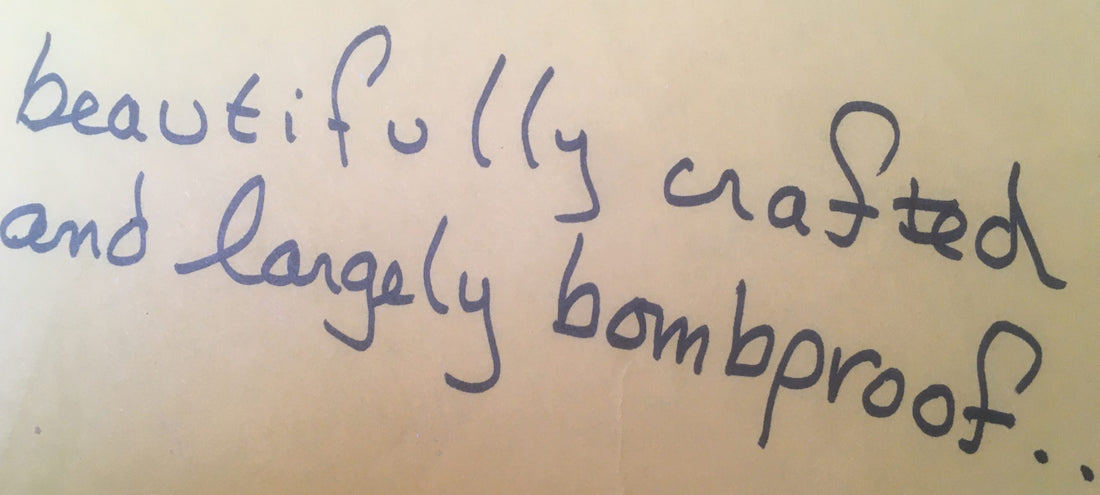 beautifully crafted
and largely bombproof..